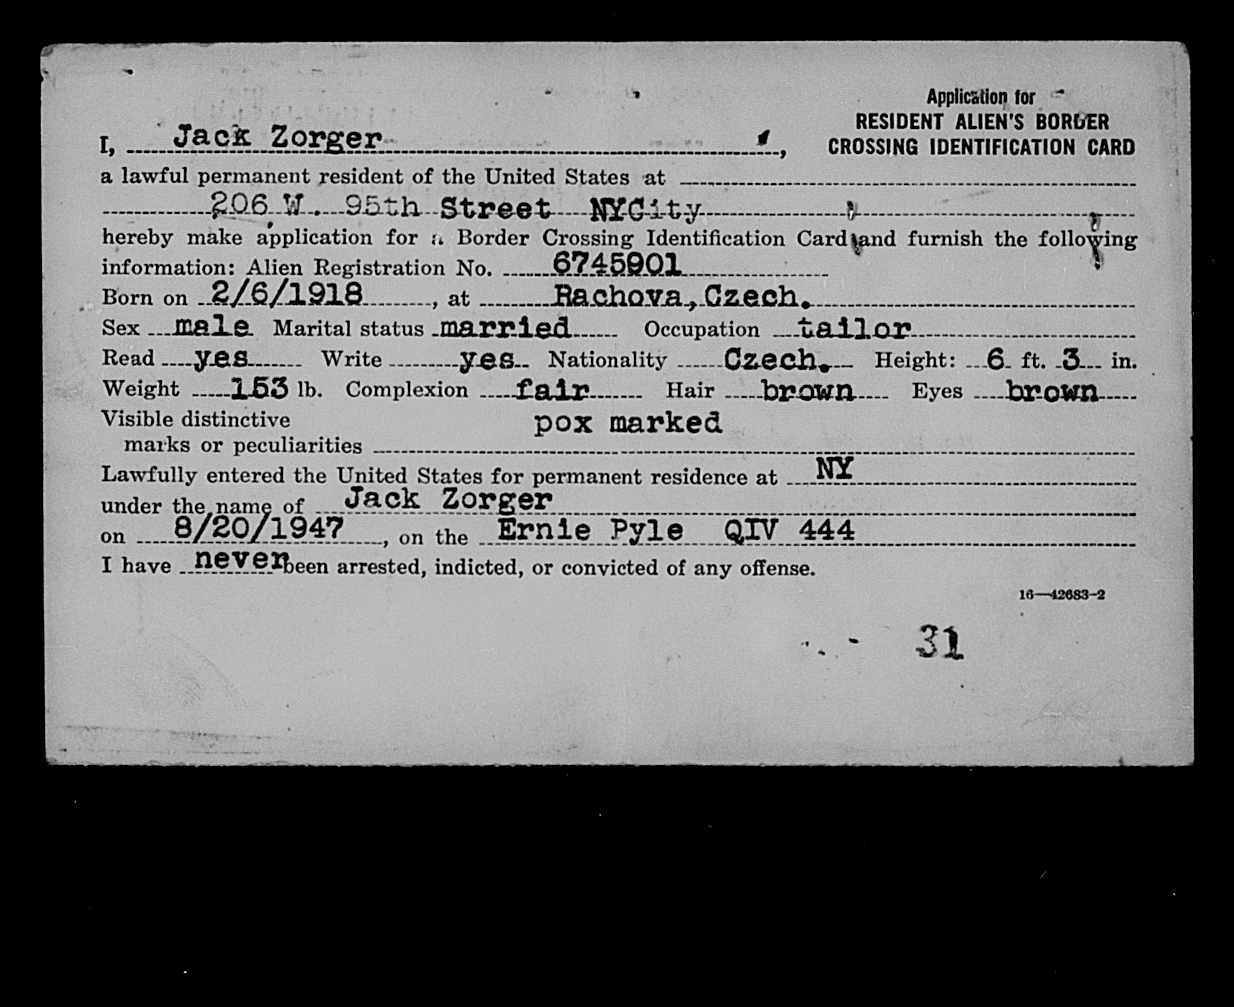 Application for
RESIDENT ALIEN'S BORDER
CROSSING IDENTIFICATION CARD
I, Jack Zorger,
a lawful permanent resident of the United States at
206 W. 95th Street NYCity
hereby make application for a Border Crossing Identification Card and furnish the following
information: Alien Registration No. 6745901
Born on 2/6/1918, at Rachova, Czech.
Sex male Marital status married Occupation tailor
Read yes Write yes Nationality Czech. Height: 6 ft. 3 in.
Weight 153 lb. Complexion fair Hair brown Eyes brown
Visible distinctive pox marked
marks or peculiarities
Lawfully entered the United States for permanent residence at NY
under the name of Jack Zorger
on 8/20/1947, on the Ernie Pyle QIV 444
I have never been arrested, indicted, or convicted of any offense.
16—42683-2
31